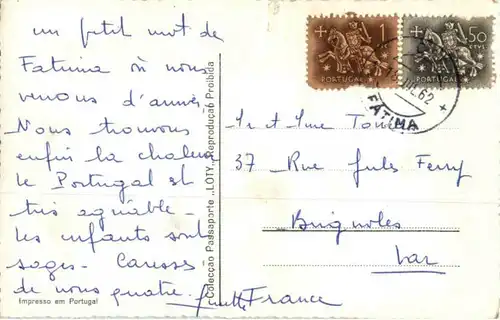 un petit mot de
Fatima où nous
venons d'arriver
Nous trouvons
enfin la chaleur
le Portugal est
très agréable.
Les enfants sont
sages. Caresses
de nous quatre.
Impresso em Portugal
Colecção Passaporte „LOTY" Reprodução Proibida
1
PORTUGAL
50
CTVS.
PORTUGAL
62
FATIMA
Mr et Mme
37 Rue Jules Ferry
Brignoles
Var
France